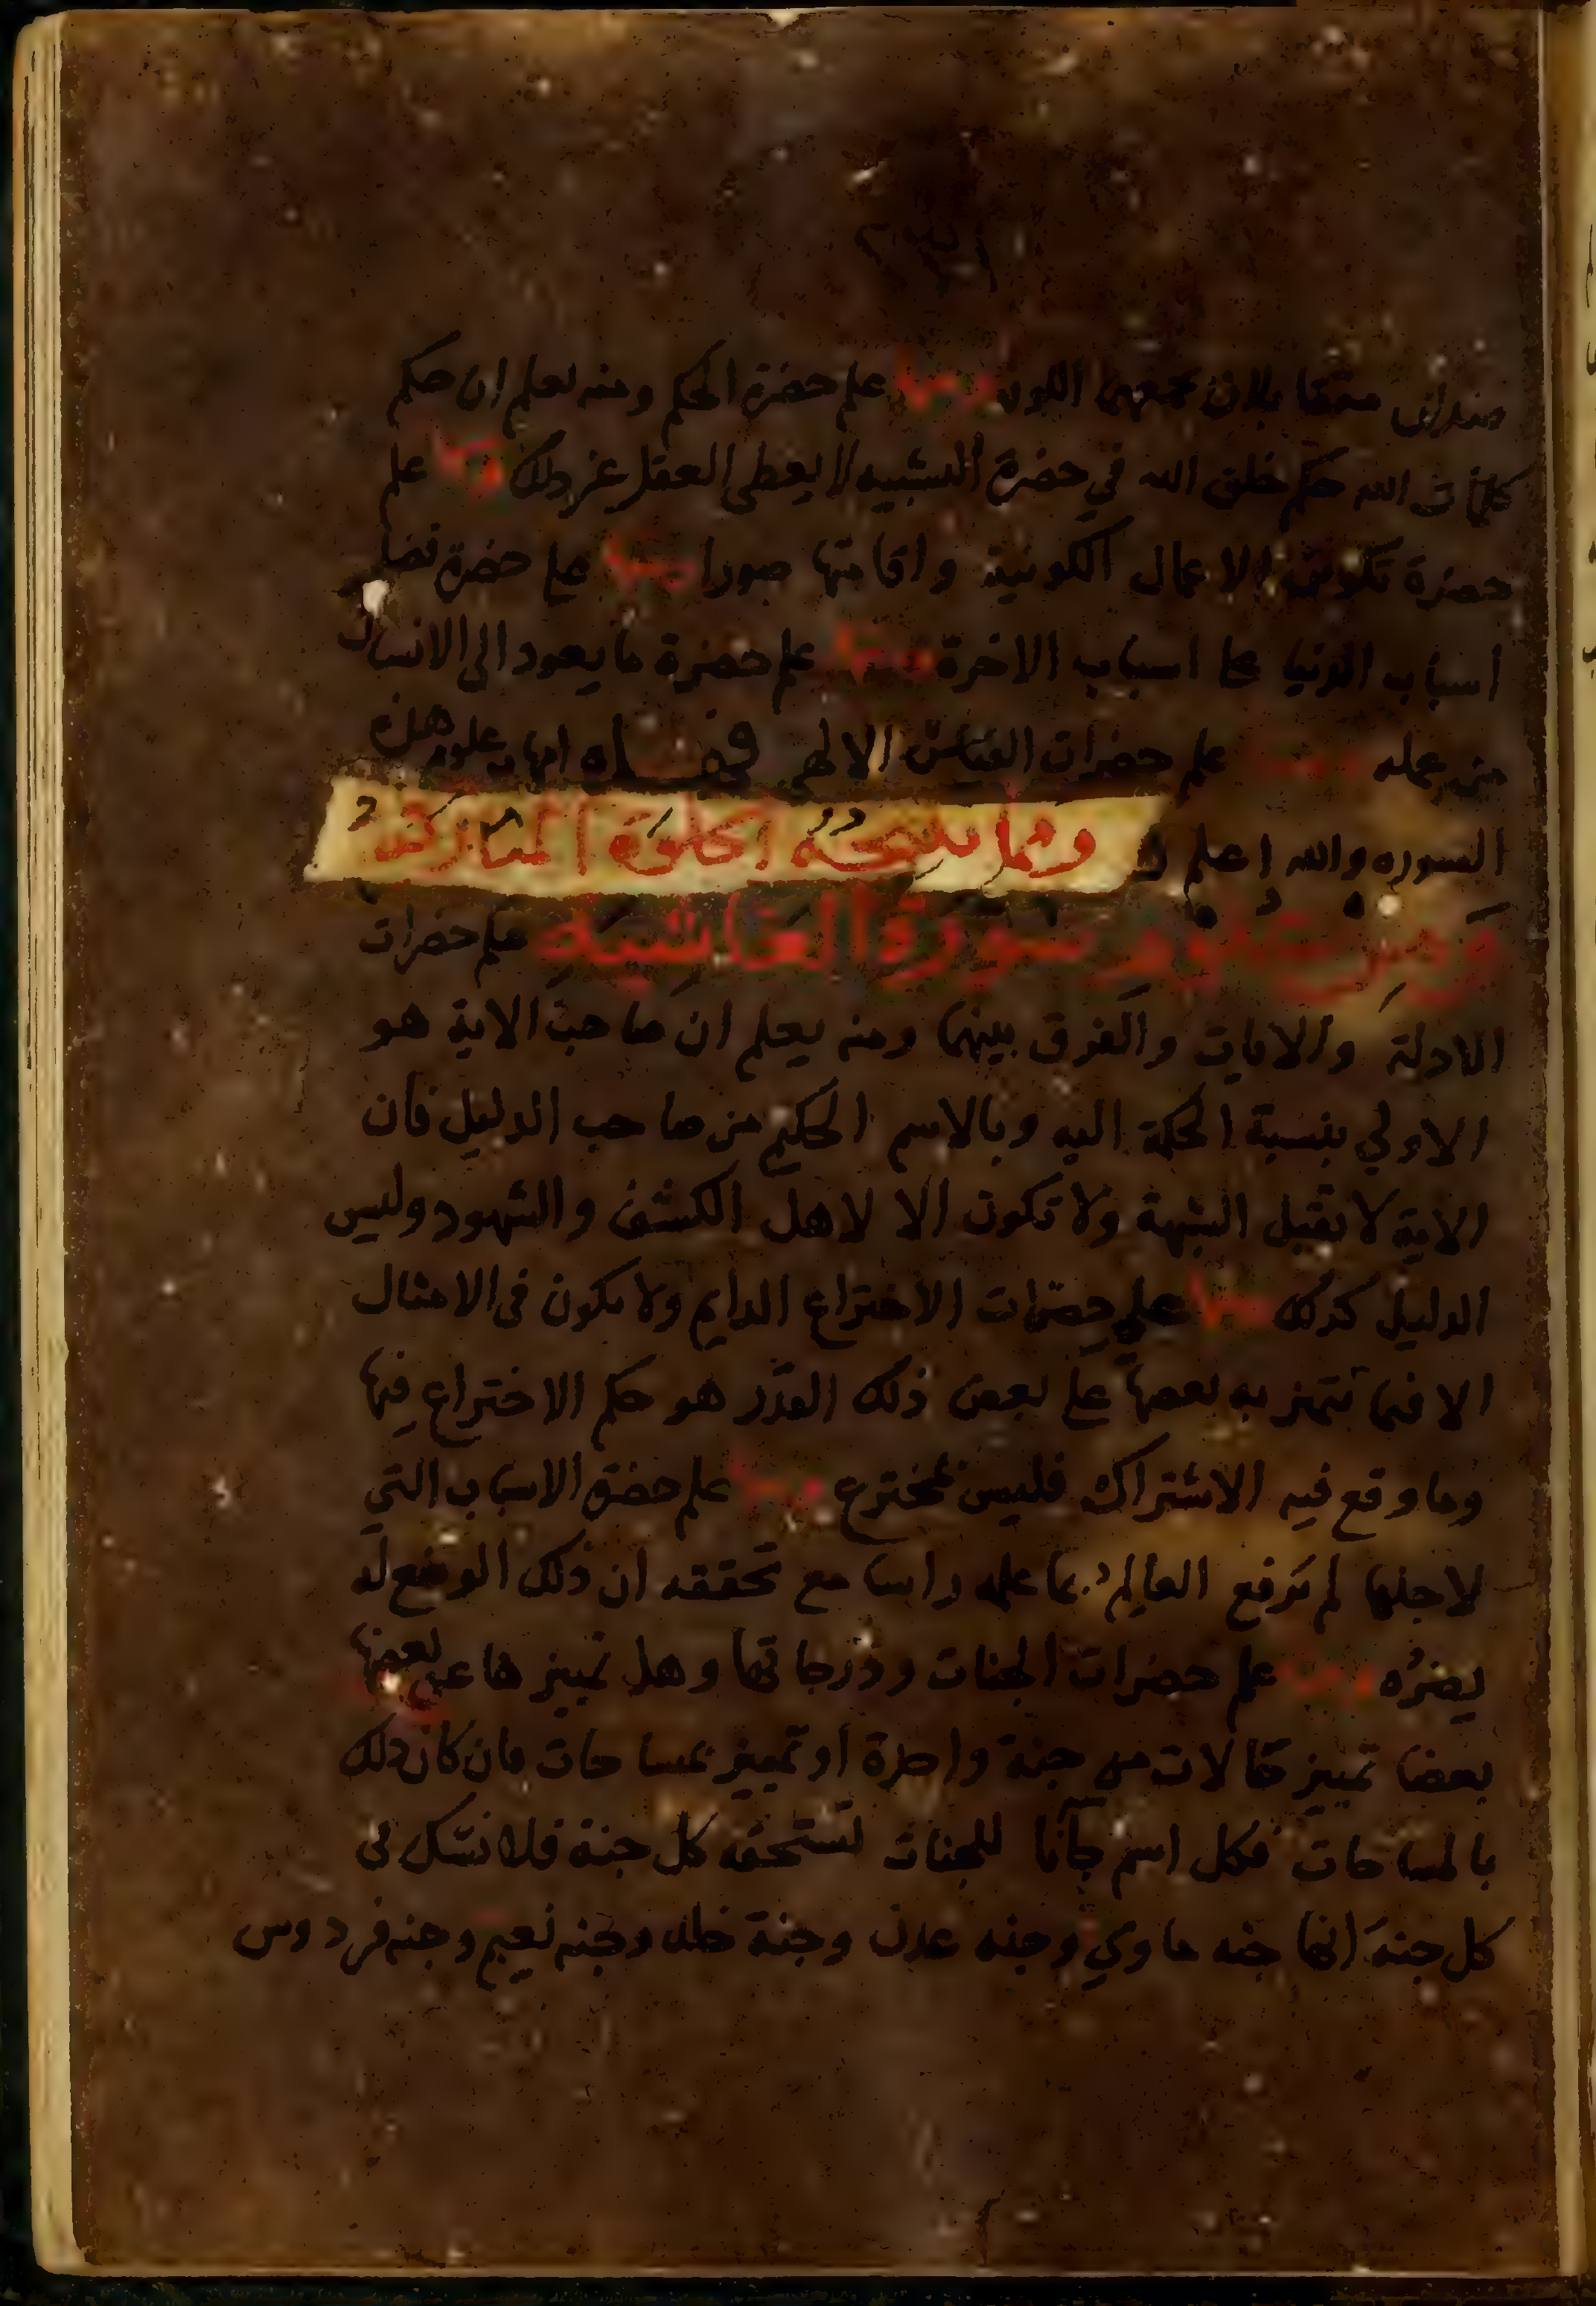 علم حضرة الحكم ومنه يعلم ان حكم
الله حكم خلق الله في حضرة التشبيه لا يعطي العقل غير ذلك ومنها علم
حضرة تكوين الاعمال الكونية واقامتها صورا ومنها علم حضرة
اسباب الدنيا علي اسباب الاخرة ومنها علم حضرة ما يعود الي الانسان
من عمله ومنها علم حضرات الالهي فهذه امهات علوم هذه
السوره والله اعلم
ومما تنتجه الخلوة المباركة
ومن علوم سورة الغاشية علم حضرات
الادلة والايات والفرق بينهما ومنه يعلم ان صاحب الاية هو
الاولي بنسبة الحكمة اليه وبالاسم الحكيم من صاحب الدليل فان
الاية لا تقبل الشبهة ولا تكون الا لاهل الكشف والشهود وليس
الدليل كذلك ومنها علم حضرات الاختراع الدايم ولا يكون في الامثال
الا فيما تتميز به بعضها علي بعض ذلك القدر هو حكم الاختراع فيها
وما وقع فيه الاشتراك فليس بمخترع ومنها علم حضرة الاسباب التي
لاجلها لم يرفع العالم بما علمه راسا مع تحققه ان ذلك الوضع له
يضره ومنها علم حضرات الجنات ودرجاتها وهل تميزها عن بعضها
بعضا تميز حالات من جنة واحدة او تميز مساحات فان كان ذلك
بالمساحات فكل اسم جآنا للجنات تستحقه كل جنة فلا نشك في
كل جنة انها جنه ماوي وجنه عدن وجنة خلد وجنه نعيم وجنه فردوس